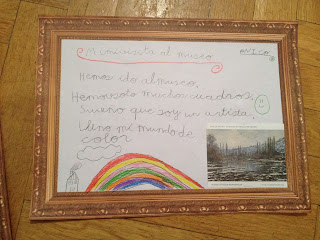 Mi mini visita al museo
Hemos ido al museo,
Hemos visto muchos cuadros;
Sueño que soy un artista.
Lleno mi mundo de
color